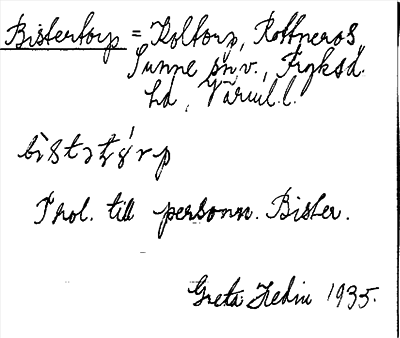 Bistertorp = Koltorp, Rottneros,
Sunne sn, v., Fryksd.
hd, Värml. l.
bìstətó̤rp
Trol. till personn. Bister.
Greta Hedin 1935.